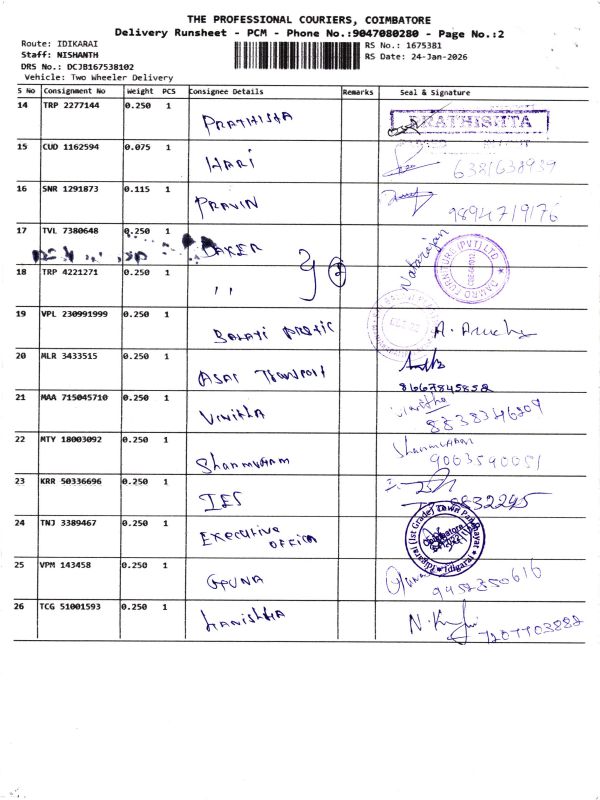 THE PROFESSIONAL COURIERS, COIMBATORE
Delivery Runsheet - PCM - Phone No.:9047080280 - Page No.:2
Route: IDIKARAI
RS No.: 1675381
Staff: NISHANTH
RS Date: 24-Jan-2026
DRS No.: DCJB167538102
Vehicle: Two Wheeler Delivery
S No Consignment No Weight PCS Consignee Details Remarks Seal & Signature
14 TRP 2277144 0.250 1 PRATHISTA PRATHISHTA
15 CUD 1162594 0.075 1 HARI 6381638939
16 SNR 1291873 0.115 1 PRAVIN 9894719176
17 TVL 7380648 0.250 1 Natarajan
18 TRP 4221271 0.250 1 ,, 2
DAURO FURNITURE (PVT) LTD
19 VPL 230991999 0.250 1 BALAJI
20 MLR 3433515 0.250 1 8667845852
21 MAA 715045710 0.250 1 Vinitha 8838346209
22 MTY 18003092 0.250 1 Shanmugam Shanmugam 9003590051
23 KRR 50336696 0.250 1 IES
24 TNJ 3389467 0.250 1 EXECUTIVE OFFICER
(1st Grade) Town Panchayat Idigarai Coimbatore
25 VPM 143458 0.250 1 GUNA 9952350616
26 TCG 51001593 0.250 1 7207703882